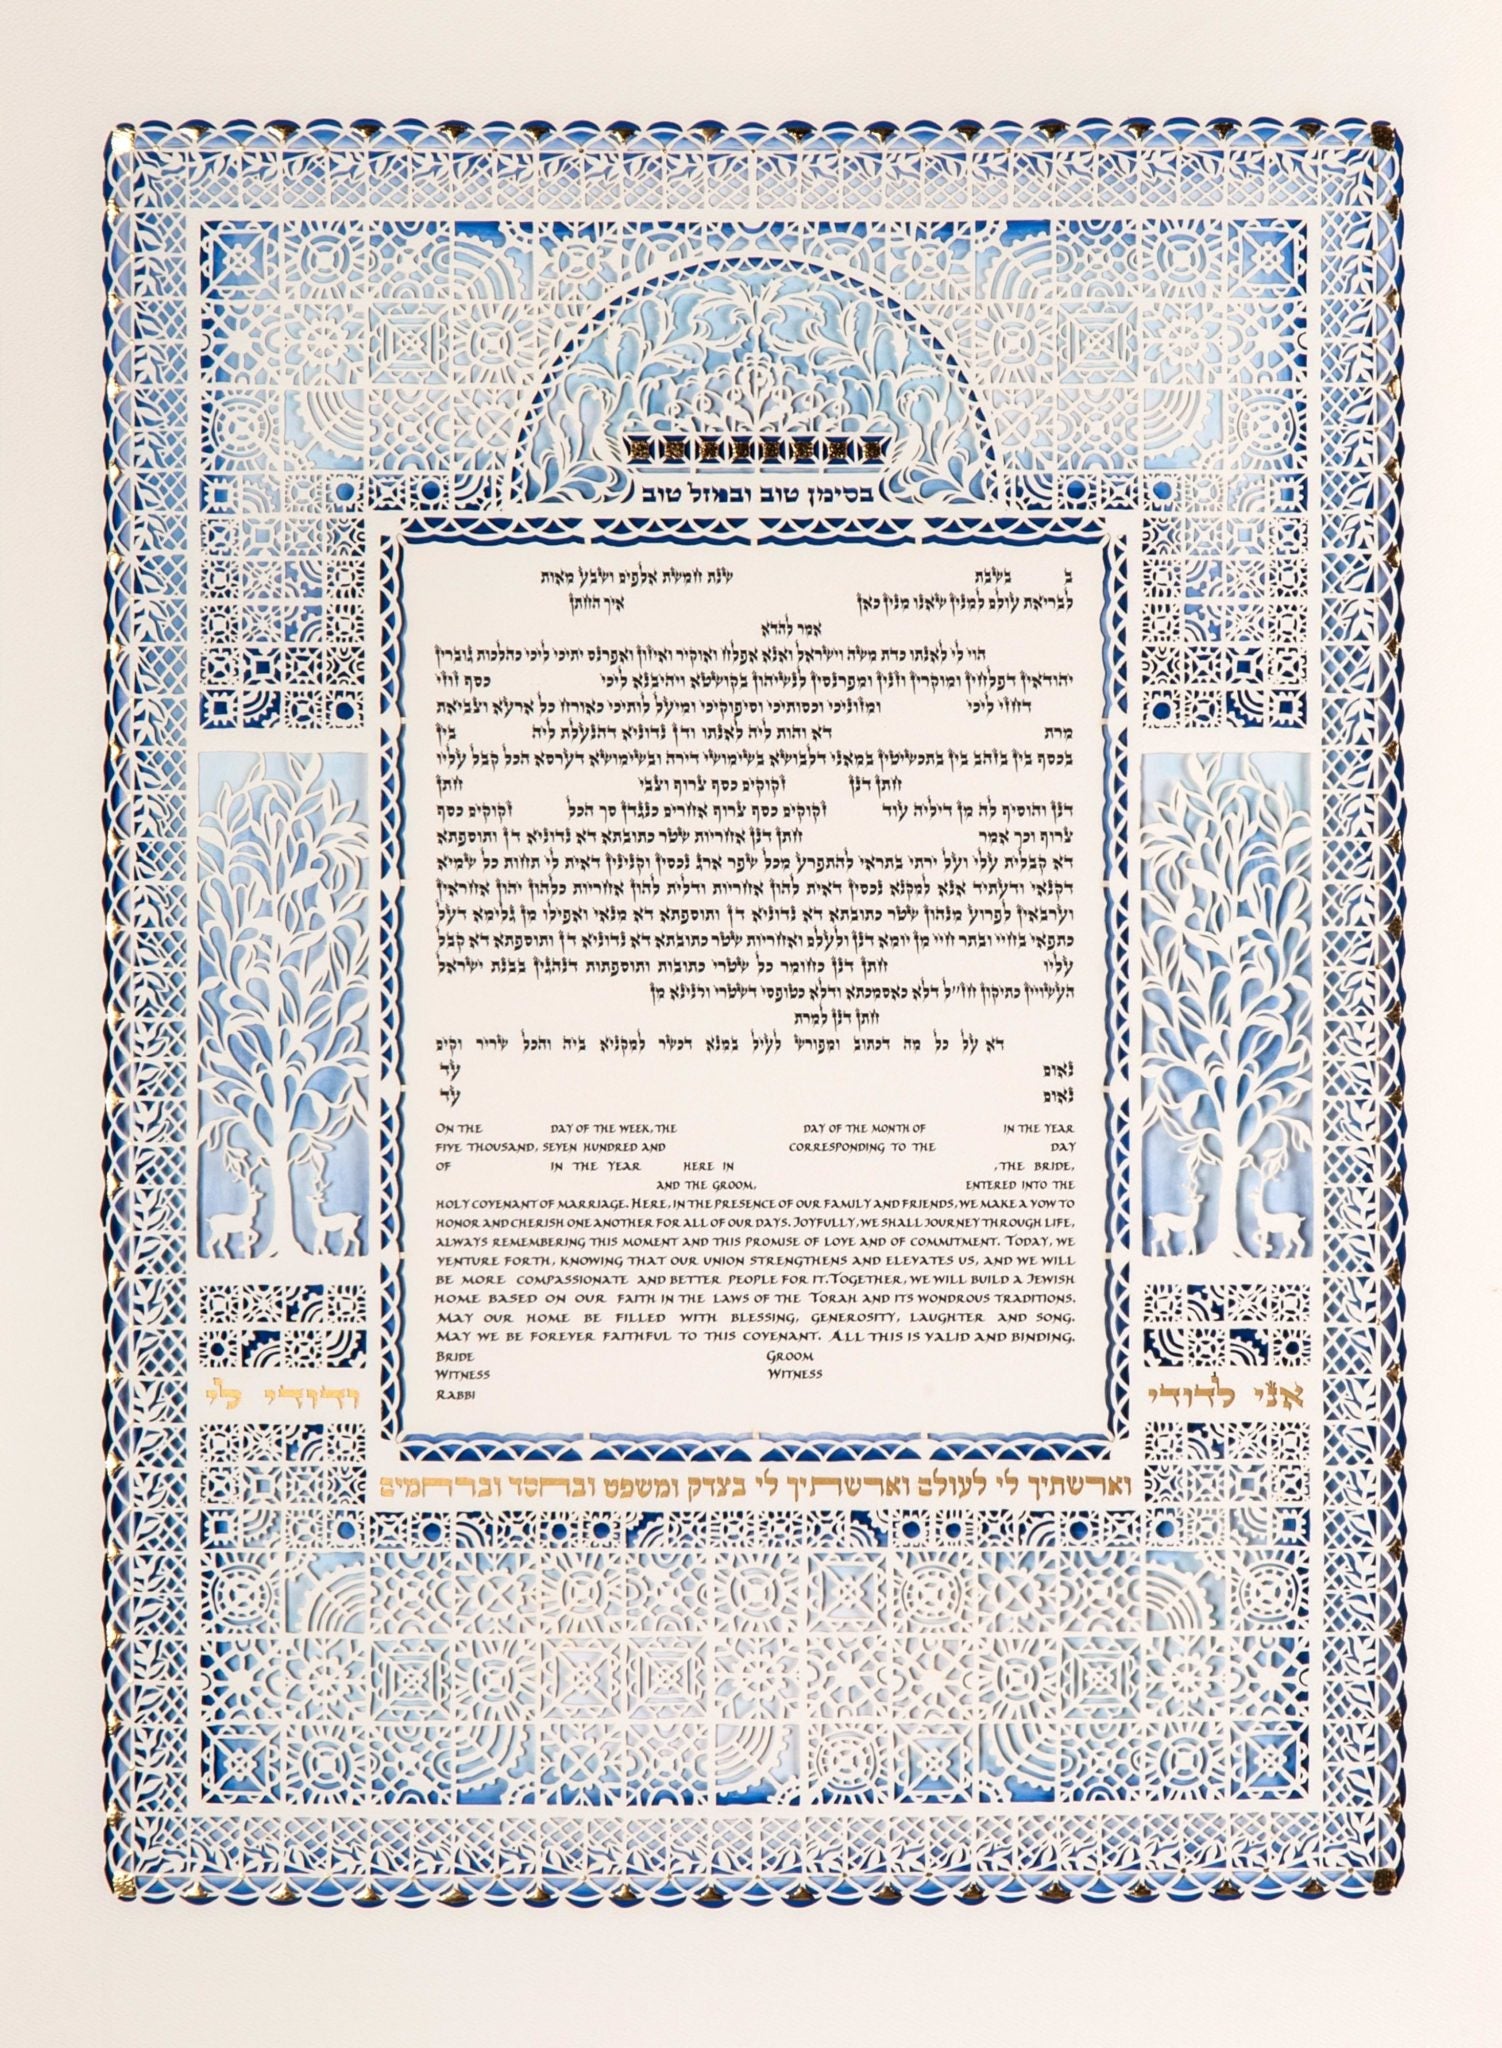 בסימן טוב ובמזל טוב
ב בשבת שנת חמשת אלפים ושבע מאות
לבריאת עולם למנין שאנו מנין כאן איך החתן
אמר להדא
הוי לי לאנתו כדת משה וישראל ואנא אפלח ואוקיר ואיזון ואפרנס יתיכי ליכי כהלכות גוברין
יהודאין דפלחין ומוקרין וזנין ומפרנסין לנשיהון בקושטא ויהיבנא ליכי כסף זוזי
דחזי ליכי ומזוניכי וכסותיכי וסיפוקיכי ומיעל לותיכי כאורח כל ארעא וצביאת
מרת דא והות ליה לאנתו ודן נדוניא דהנעלת ליה בין
בכסף בין בזהב בין בתכשיטין במאני דלבושא בשימושי דירה ובשימושא דערסא הכל קבל עליו
חתן דנן זקוקים כסף צרוף וצבי חתן
דנן והוסיף לה מן דיליה עוד זקוקים כסף צרוף אחרים כנגדן סך הכל זקוקים כסף
צרוף וכך אמר חתן דנן אחריות שטר כתובתא דא נדוניא דן ותוספתא
דא קבלית עלי ועל ירתי בתראי להתפרע מכל שפר ארג נכסין וקנינין דאית לי תחות כל שמיא
דקנאי ודעתיד אנא למקנא נכסין דאית להון אחריות ודלית להון אחריות כלהון יהון אחראין
וערבאין לפרוע מנהון שטר כתובתא דא נדוניא דן ותוספתא דא מנאי ואפילו מן גלימא דעל
כתפאי בחיי ובתר חיי מן יומא דנן ולעלם ואחריות שטר כתובתא דא נדוניא דן ותוספתא דא קבל
עליו חתן דנן כחומר כל שטרי כתובות ותוספתות דנהגין בבנת ישראל
העשויין כתיקון חז״ל דלא כאסמכתא ודלא כטופסי דשטרי וקנינא מן
חתן דנן למרת
דא על כל מה דכתוב ומפורש לעיל במנא דכשר למקניא ביה והכל שריר וקים
נאום עד
נאום עד
ON THE DAY OF THE WEEK, THE DAY OF THE MONTH OF IN THE YEAR
FIVE THOUSAND, SEVEN HUNDRED AND CORRESPONDING TO THE DAY
OF IN THE YEAR HERE IN , THE BRIDE,
AND THE GROOM, ENTERED INTO THE
HOLY COVENANT OF MARRIAGE. HERE, IN THE PRESENCE OF OUR FAMILY AND FRIENDS, WE MAKE A VOW TO
HONOR AND CHERISH ONE ANOTHER FOR ALL OF OUR DAYS. JOYFULLY, WE SHALL JOURNEY THROUGH LIFE,
ALWAYS REMEMBERING THIS MOMENT AND THIS PROMISE OF LOVE AND OF COMMITMENT. TODAY, WE
VENTURE FORTH, KNOWING THAT OUR UNION STRENGTHENS AND ELEVATES US, AND WE WILL
BE MORE COMPASSIONATE AND BETTER PEOPLE FOR IT. TOGETHER, WE WILL BUILD A JEWISH
HOME BASED ON OUR FAITH IN THE LAWS OF THE TORAH AND ITS WONDROUS TRADITIONS.
MAY OUR HOME BE FILLED WITH BLESSING, GENEROSITY, LAUGHTER AND SONG.
MAY WE BE FOREVER FAITHFUL TO THIS COVENANT. ALL THIS IS VALID AND BINDING.
BRIDE GROOM
WITNESS WITNESS
RABBI
אני לדודי ודודי לי
וארשתיך לי לעולם וארשתיך לי בצדק ומשפט ובחסד וברחמים